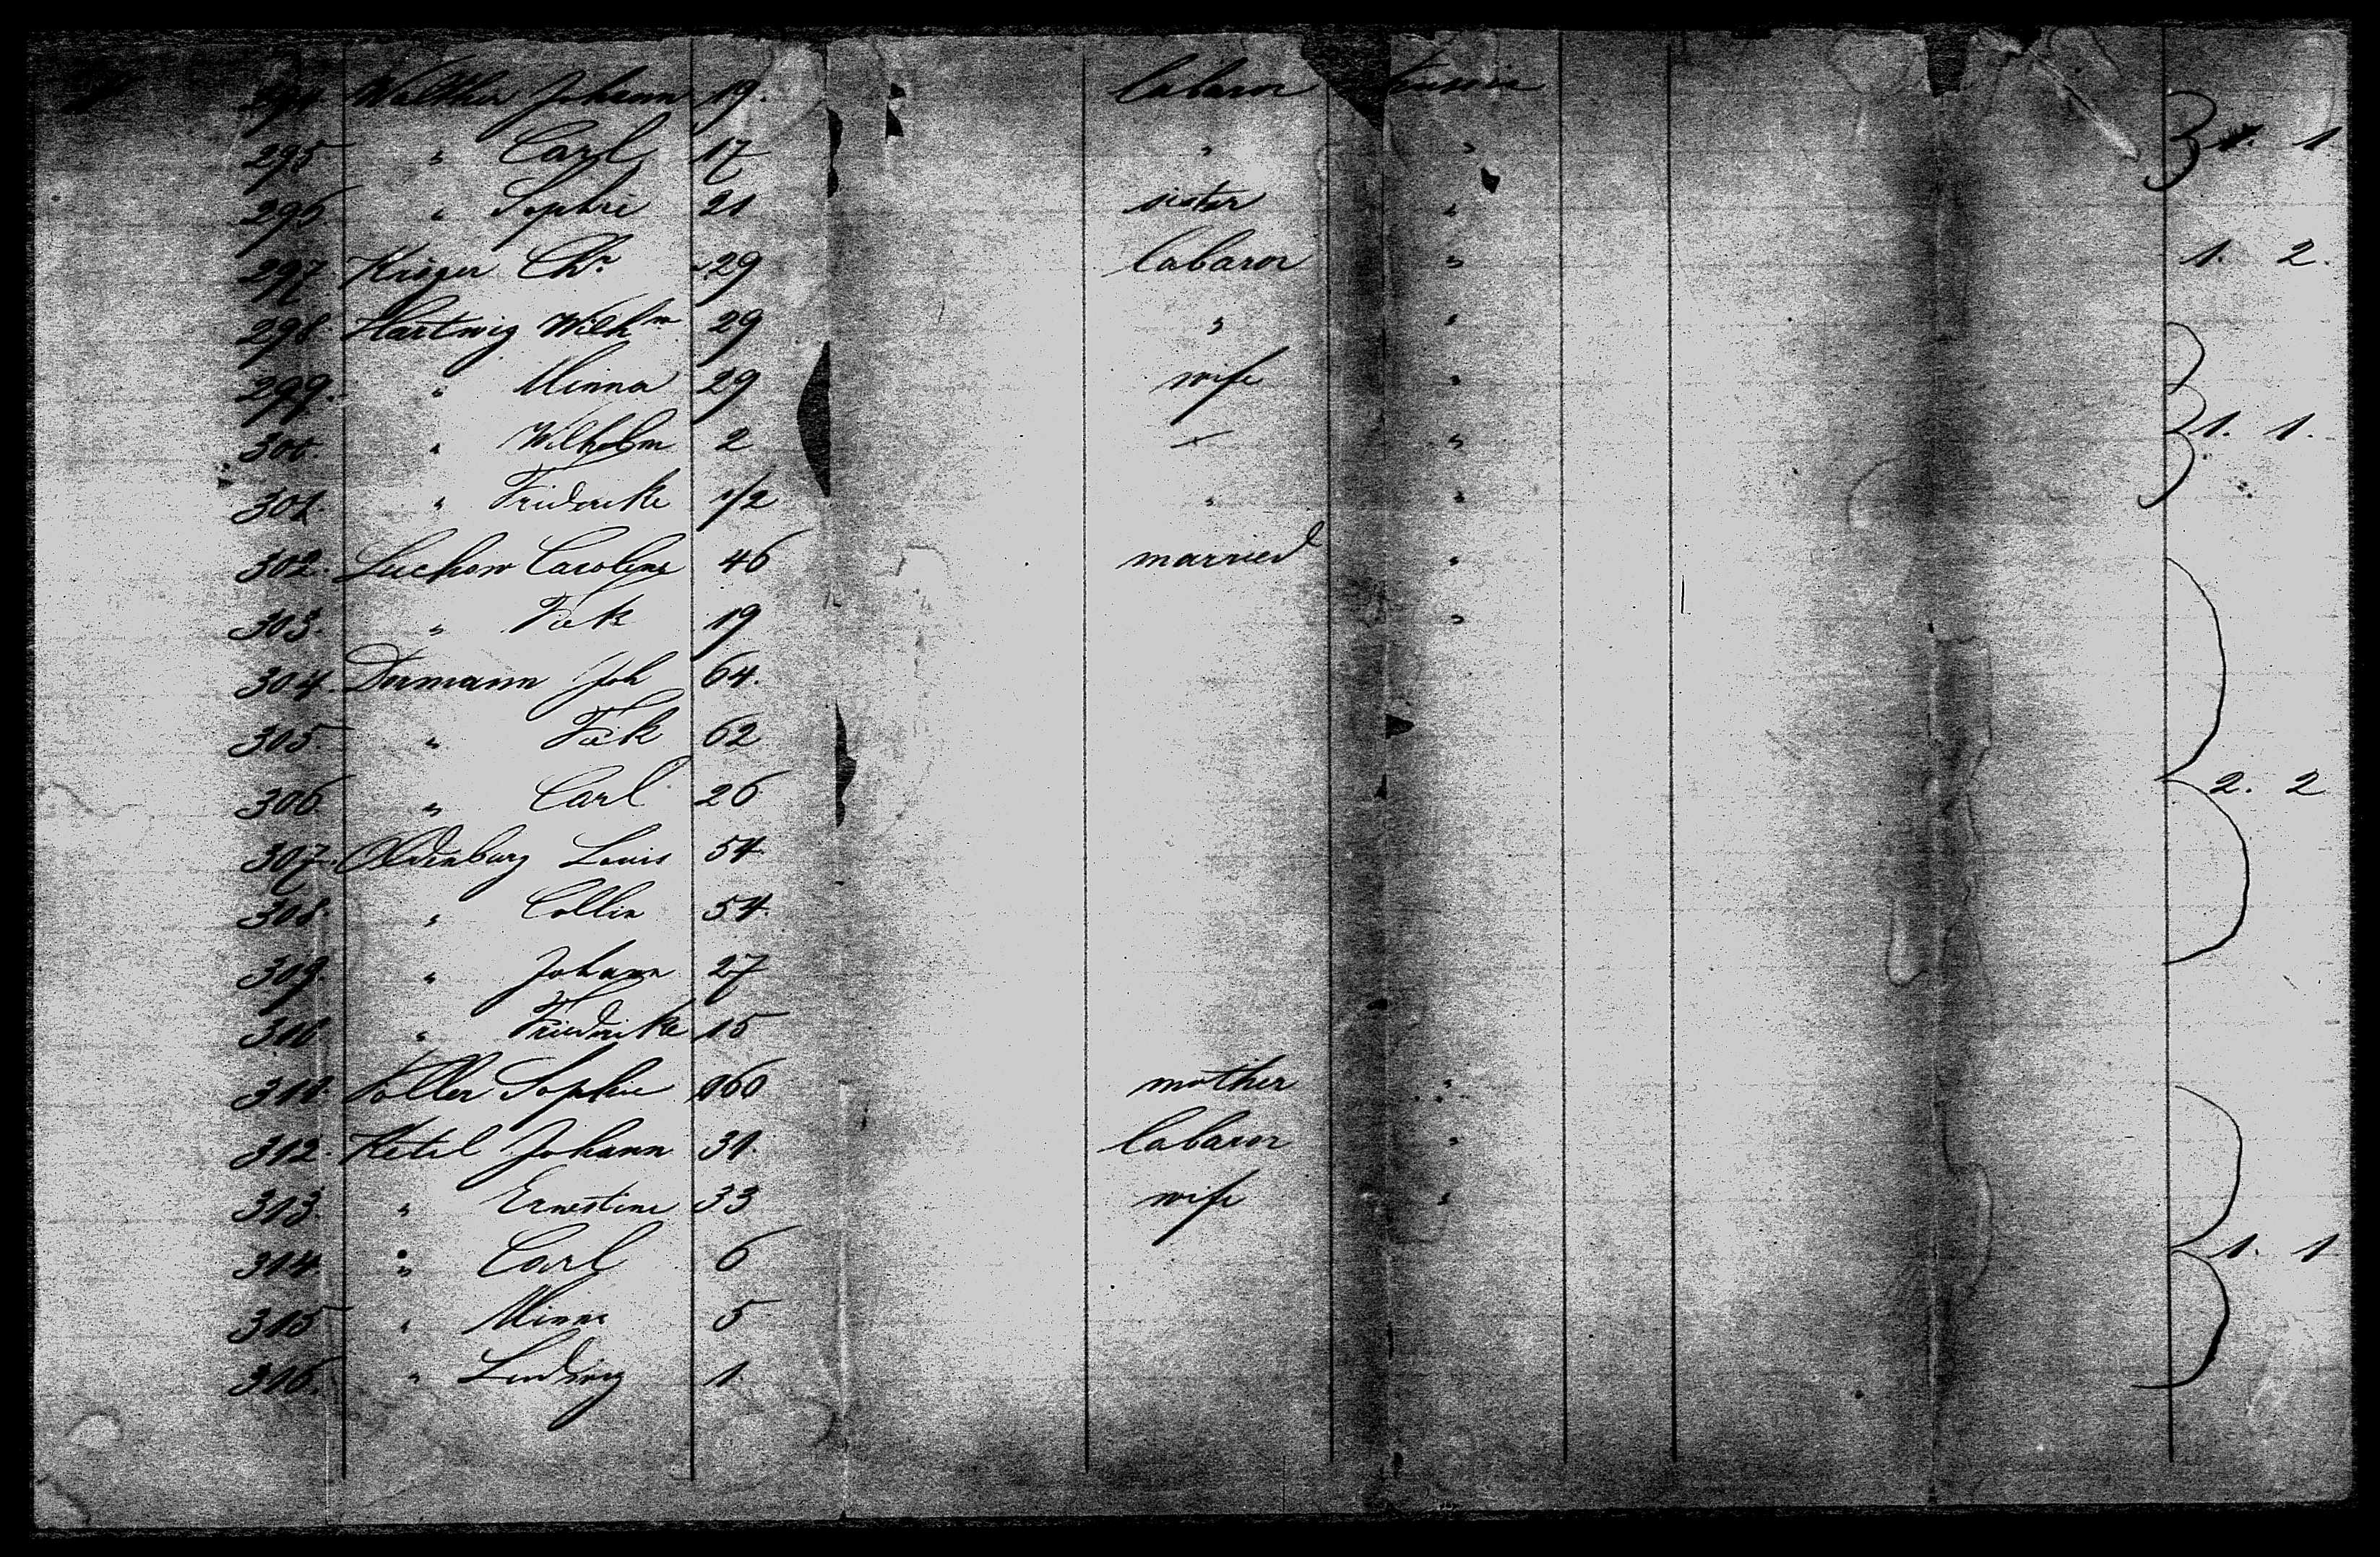 294. Walther Johann 19. labaror
295. " Carl 17 " " 1. 1
296. " Sophie 21 sister "
297. Krüger Chr. 29 labaror " 1. 2.
298. Hartwig Wilhm 29 " "
299. " Minna 29 wife "
300. " Wilhelm 2 — " 1. 1.
301. " Friderike 1/2 " "
302. Luchow Caroline 46 married "
303. " Fick 19 "
304. Dormann Joh 64.
305 " Fick 62
306 " Carl 26 2. 2
307. Oldenburg Louis 54
308. " Collin 54.
309. " Johann 27
310 " Friedrike 15
311. Sophie 60 mother "
312. Ketel Johann 31. labaror "
313. " Ernestine 33 wife "
314 " Carl 6 1. 1
315 " Minna 5
316. " Ludwig 1.